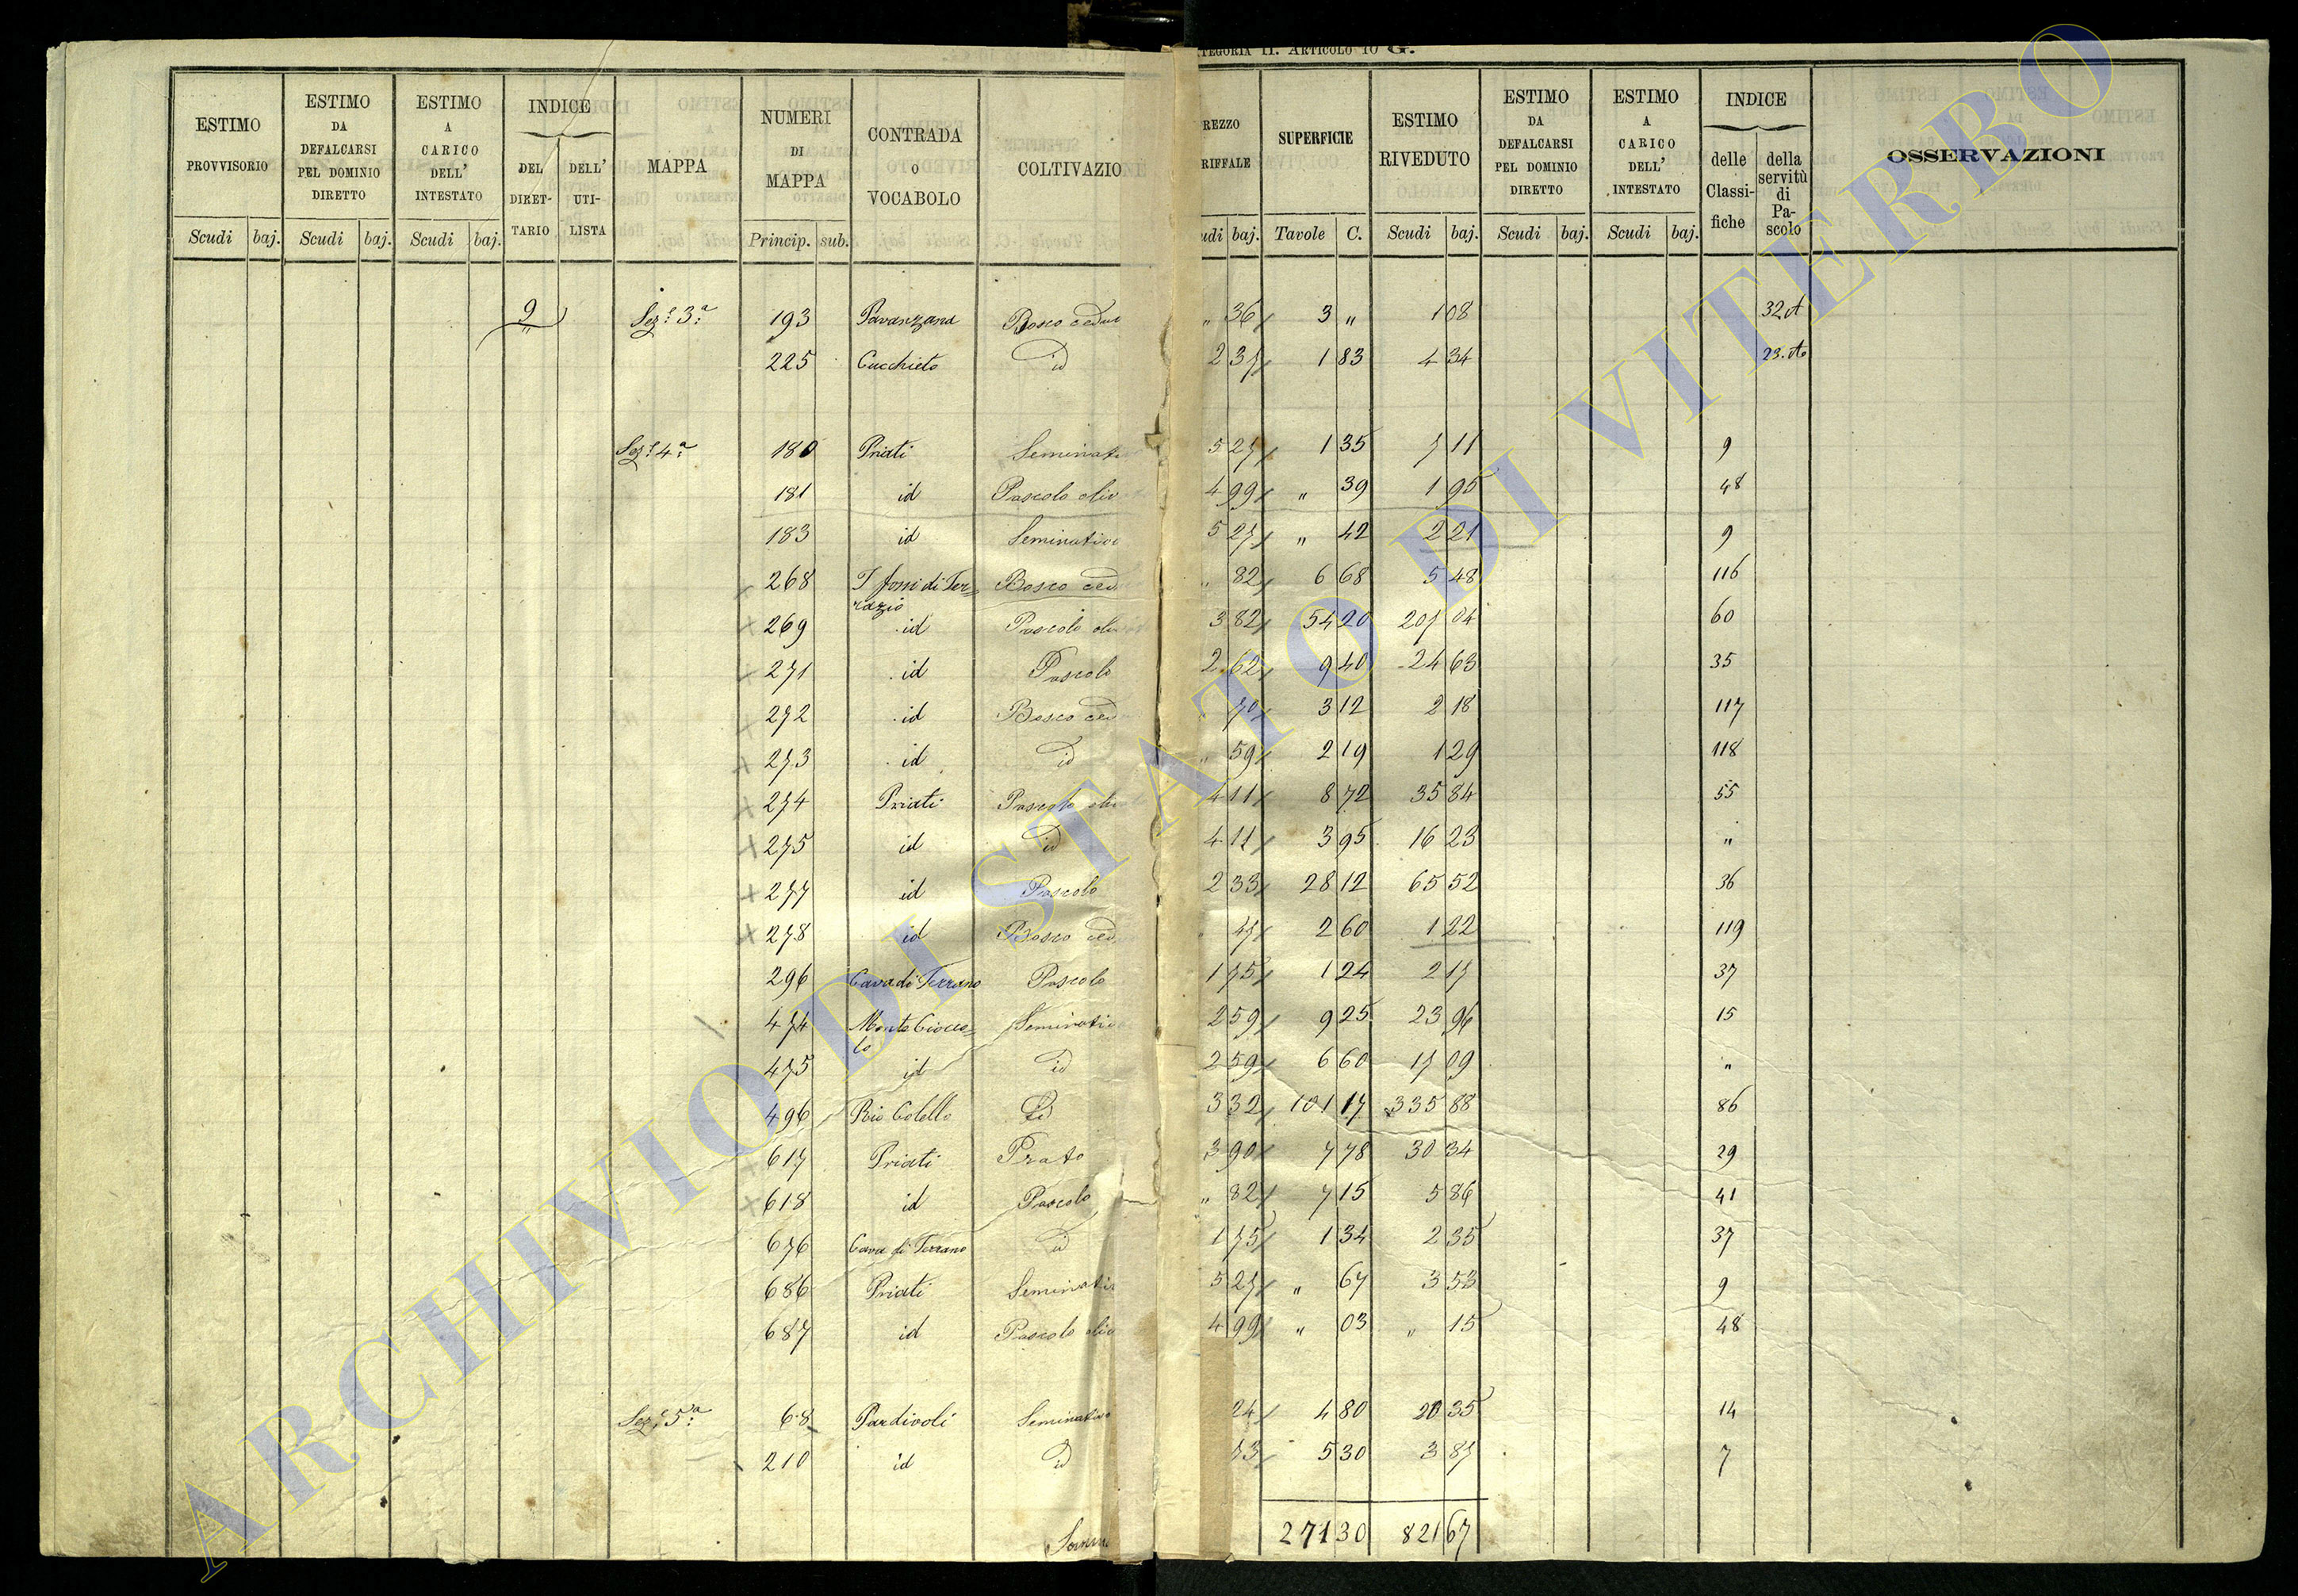 TEGORIA II. ARTICOLO 10 G.
ESTIMO PROVVISORIO
ESTIMO DA DEFALCARSI PEL DOMINIO DIRETTO
ESTIMO A CARICO DELL' INTESTATO
INDICE
DEL DIRET-TARIO
DELL' UTI-LISTA
MAPPA
NUMERI DI MAPPA
CONTRADA O VOCABOLO
COLTIVAZIO
REZZO RIFFALE
SUPERFICIE
ESTIMO RIVEDUTO
ESTIMO DA DEFALCARSI PEL DOMINIO DIRETTO
ESTIMO A CARICO DELL' INTESTATO
INDICE
delle Classi-fiche
della servitù di Pa-scolo
OSSERVAZIONI
Scudi baj. Scudi baj. Scudi baj. Princip. sub. udi baj. Tavole C. Scudi baj. Scudi baj. Scudi baj.
9 Sez.e 3.a 193 Pavanzana Bosco ceduo " 36 3 " 1 08 32 A
225 Cucchieto id 2 37 1 83 4 34 23. A
Sez.e 4.a 180 Priati Seminati 5 27 1 35 7 11 9
181 id Pascolo oliv 4 99 " 39 1 95 48
183 id Seminativo 5 27 " 42 2 21 9
268 I fossi di Ter= Bosco ced " 82 6 68 5 48 116
razio
269 id Pascolo oliv 3 82 54 20 207 04 60
271 id Pascolo 2 62 9 40 24 63 35
272 id Bosco ced 70 3 12 2 18 117
273 id id " 59 2 19 1 29 118
274 Priati Pascolo oliv 4 11 8 72 35 84 55
275 id id 4 11 3 95 16 23 "
277 id Pascolo 2 33 28 12 65 52 36
278 id Bosco ced 47 2 60 1 22 119
296 Cava di Terrano Pascolo 1 75 1 24 2 17 37
474 Monte Ciocco= Seminativo 2 59 9 25 23 96 15
lo
475 id id 2 59 6 60 17 09 "
496 Rio Colello id 3 32 101 17 335 88 86
617 Priati Prato 3 90 7 78 30 34 29
618 id Pascolo " 82 7 15 5 86 41
676 Cava di Terrano id 1 75 1 34 2 35 37
686 Priati Seminativ 5 27 " 67 3 53 9
687 id Pascolo oliv 4 99 " 03 " 15 48
Sez.e 5.a 68 Pardivoli Seminativo 24 4 80 20 35 14
210 id id 73 5 30 3 87 7
Somm 271 30 821 67
ARCHIVIO DI STATO DI VITERBO